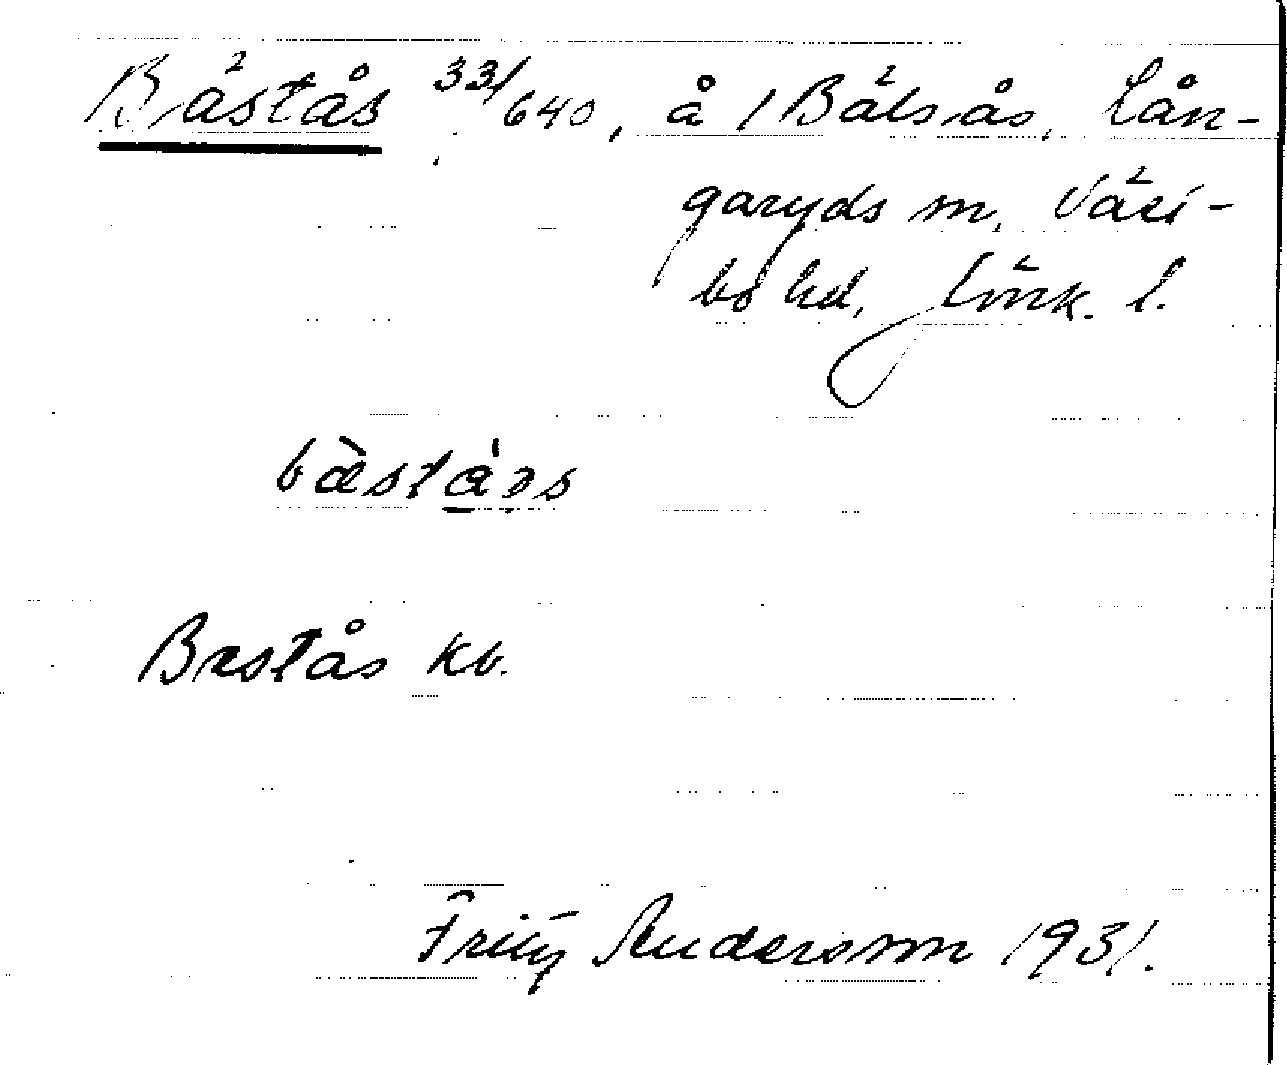 Bästås 33/640, å 1 Bälsås, Lån-
garyds sn, Väst-
bo hd, Jönk. l.
bæ̀stås
Bæstås kb.
Fritz Andersson 1931.